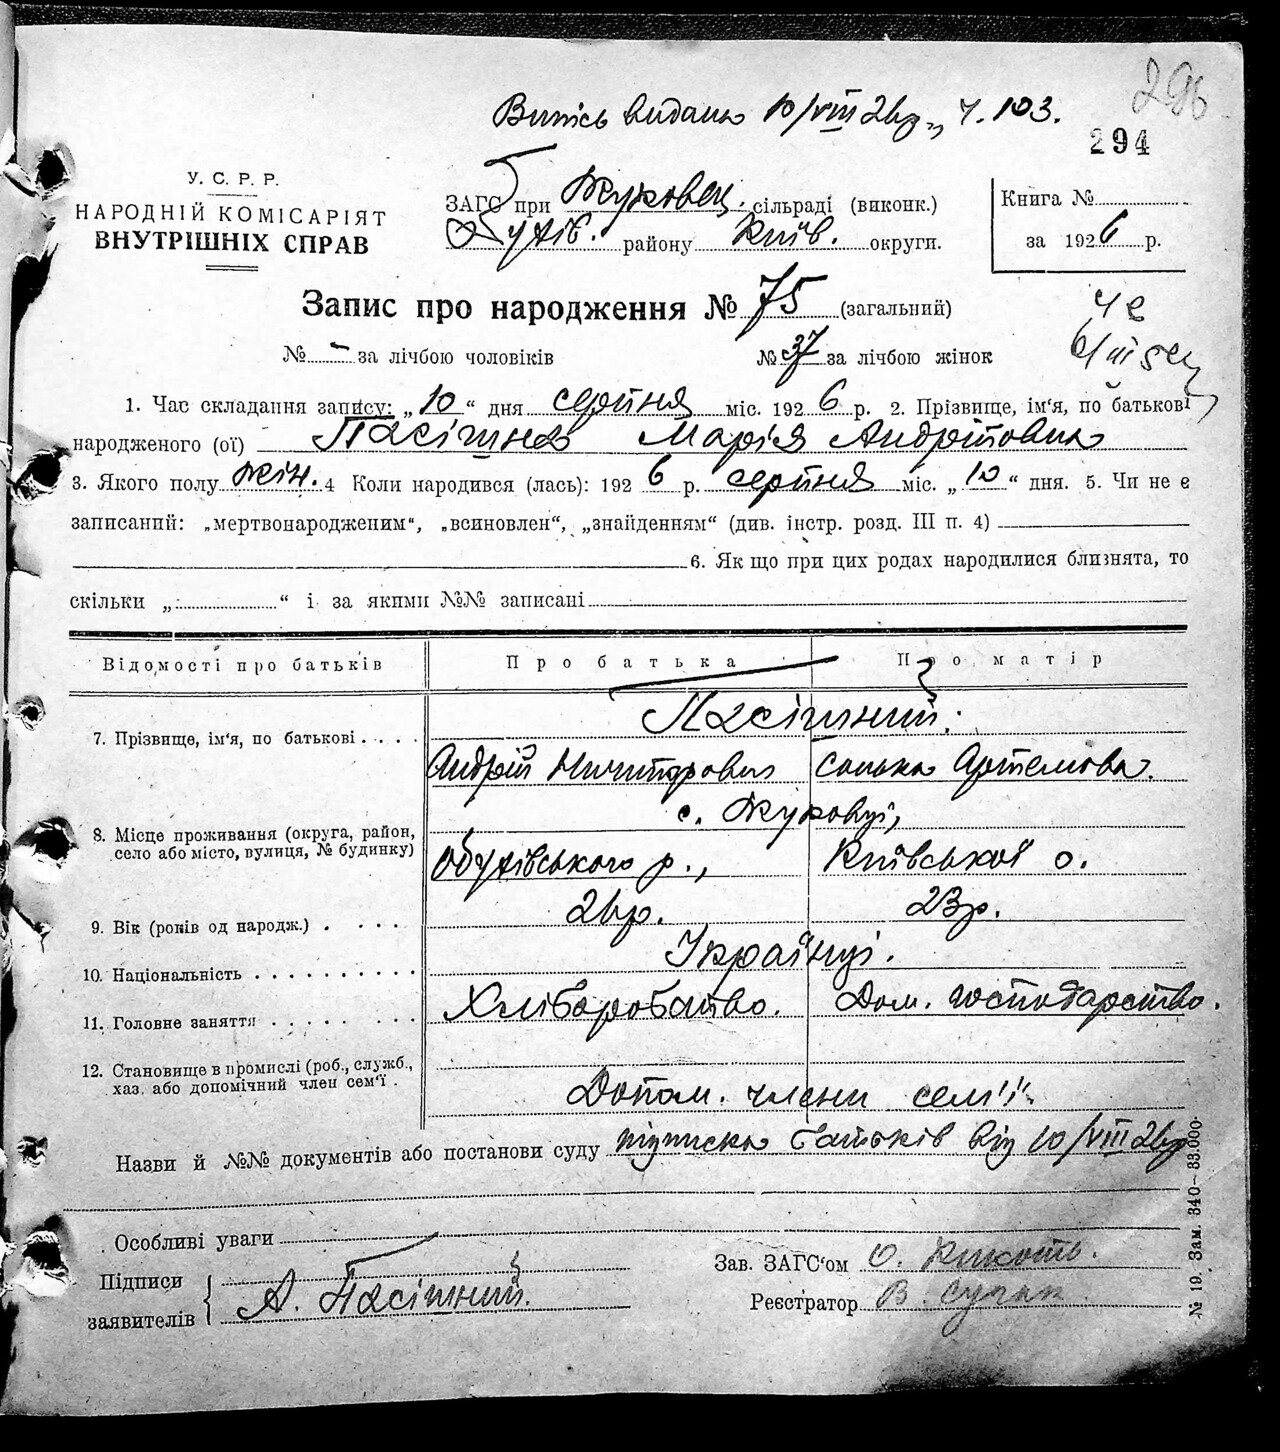 296
Випись видана 10/VIII 26р., ч. 103.
294
У. С. Р. Р.
НАРОДНІЙ КОМІСАРІЯТ
ВНУТРІШНІХ СПРАВ
ЗАГС при Жуковец. сільраді (виконк.)
Обухів. району Київ. округи.
Книга №
за 1926 р.
Запис про народження № 75 (загальний)
№ - за лічбою чоловіків № 37 за лічбою жінок
1. Час складання запису: „10“ дня серпня міс. 1926 р. 2. Прізвище, ім'я, по батькові
народженого (ої) Пасішна Марія Андріївна
3. Якого полу жін. 4 Коли народився (лась): 1926 р. серпня міс. „10“ дня. 5. Чи не є
записаний: „мертвонародженим“, „всиновлен“, „знайденням“ (див. інстр. розд. III п. 4)
6. Як що при цих родах народилися близнята, то
скільки „ “ і за якими №№ записані
Відомості про батьків Про батька Про матір
7. Прізвище, ім'я, по батькові Пасішний.
Андрій Ничипорович Сонька Артемова.
с. Жуковці,
8. Місце проживання (округа, район,
село або місто, вулиця, № будинку) Обухівського р., Київської о.
9. Вік (років од народж.) 26р. 23р.
10. Національність Українці.
11. Головне заняття Хліборобство. Дом. господарство.
12. Становище в промислі (роб., служб.,
хаз. або допомічний член сем'ї. Допом. члени сем'ї.
Назви й №№ документів або постанови суду підписка батьків від 10/VIII 26р
Особливі уваги
Підписи
заявителів А. Пасішний.
Зав. ЗАГС'ом О.
Реєстратор В.
№ 19. Зам. 340—33.000.